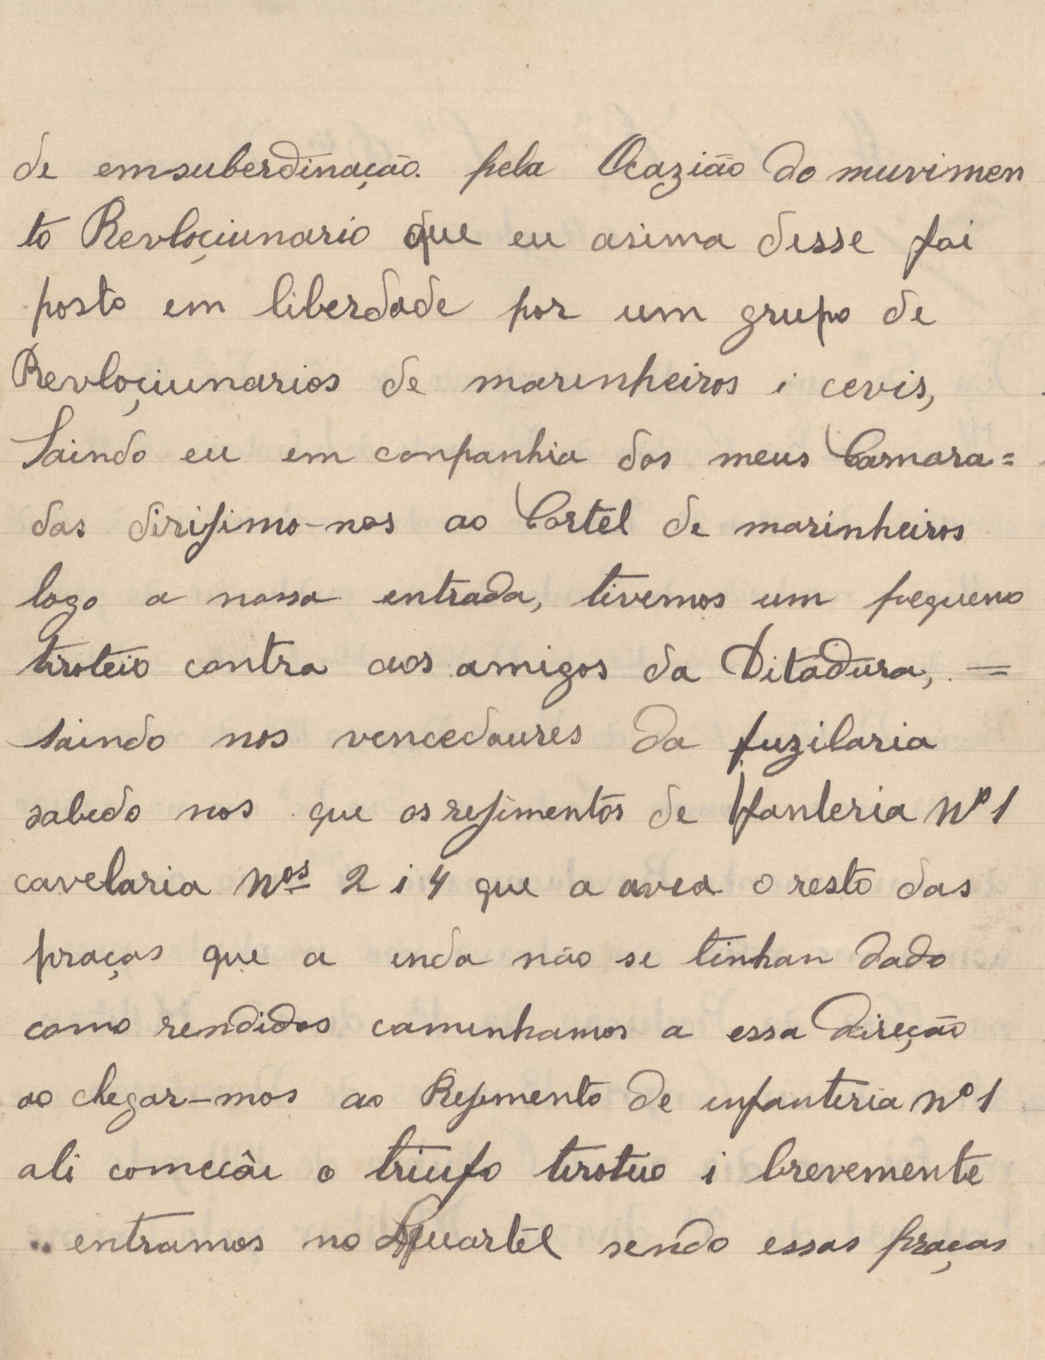 de emsuberdinação. pela Ocazião do muvimen
to Revloçiunario que eu asima desse foi
posto em liberdade por um grupo de
Revloçiunarios de marinheiros i cevis,
Saindo eu em conpanhia dos meus Camara=
das dirisimo-nos ao Cortel de marinheiros
logo a nossa entrada, tivemos um pequeno
tiroteio contra aos amigos da Ditadura, =
saindo nos vencedoures da fuzilaria
sabedo nos que os resimentos de Ifanteria Nº 1
cavelaria Nos 2 i 4 que a avea o resto das
praças que a inda não se tinhan dado
como rendidos caminhamos a essa direção
ao chegar-mos ao Resimento de infanteria nº 1
ali comecôu o triufo tirotuo i brevemente
entramos no Quartel sendo essas praças